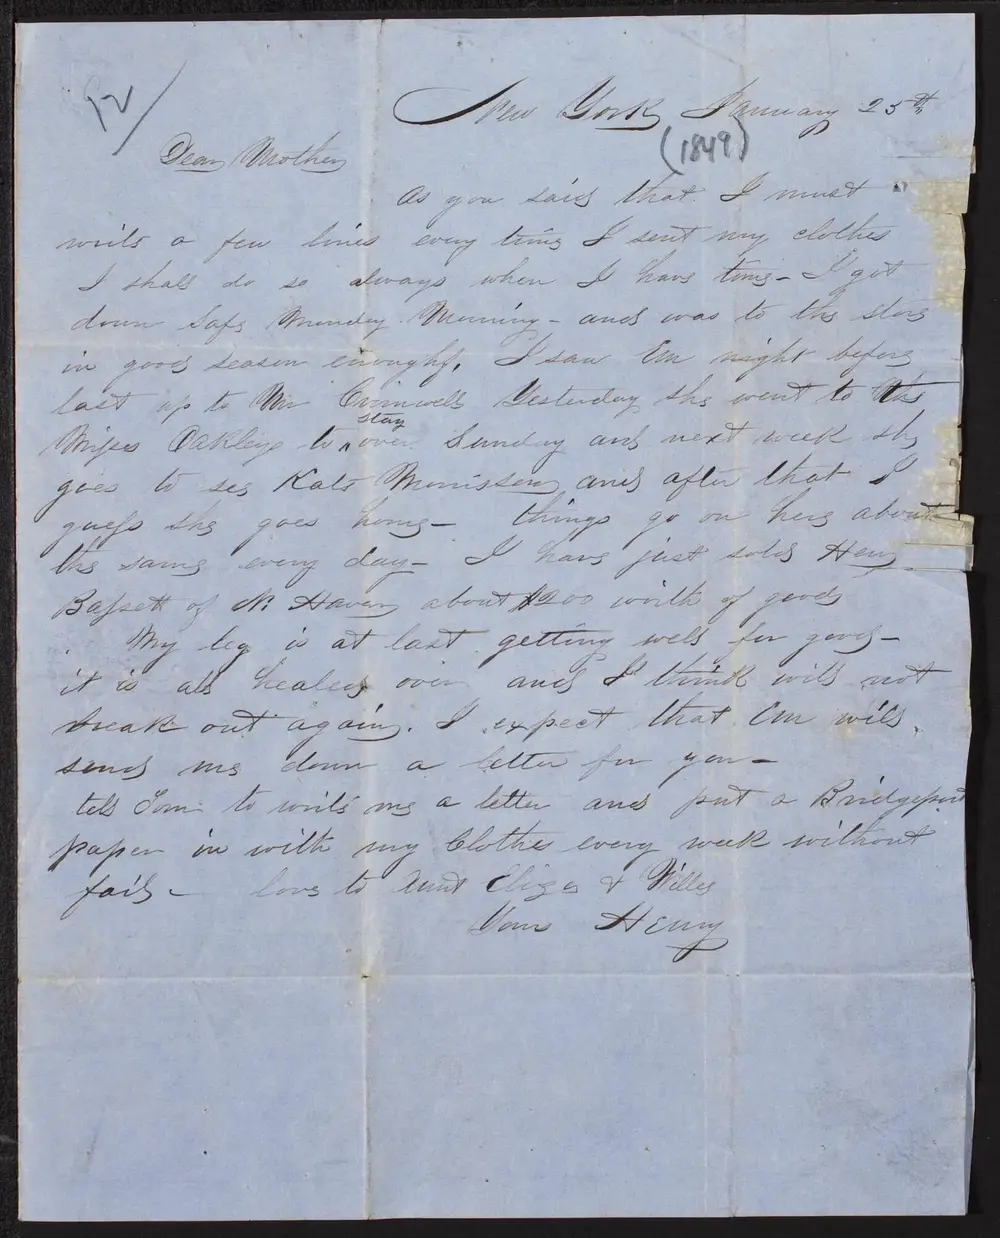 92/
New York January 25th
(1849)
Dear Mother
As you said that I must
write a few lines every time I sent my clothes
I shall do so always when I have time - I got
down safe Monday Morning - and was to the store
in good season enough. I saw Em night before
last up to Mr Yesterday she went to the
Misses Oakleys to
stay
over Sunday and next week she
goes to see Kate Morrison and after that I
guess she goes home - things go on here about
the same every day - I have just sold Henry
Bassett of N. Haven about $200 worth of goods
My leg is at last getting well for good -
it is all healed over and I think will not
break out again. I expect that Em will
send me down a letter for you -
tell Tom to write me a letter and put a Bridgeport
paper in with my Clothes every week without
fail - love to Aunt Eliza & Willey
Your Henry